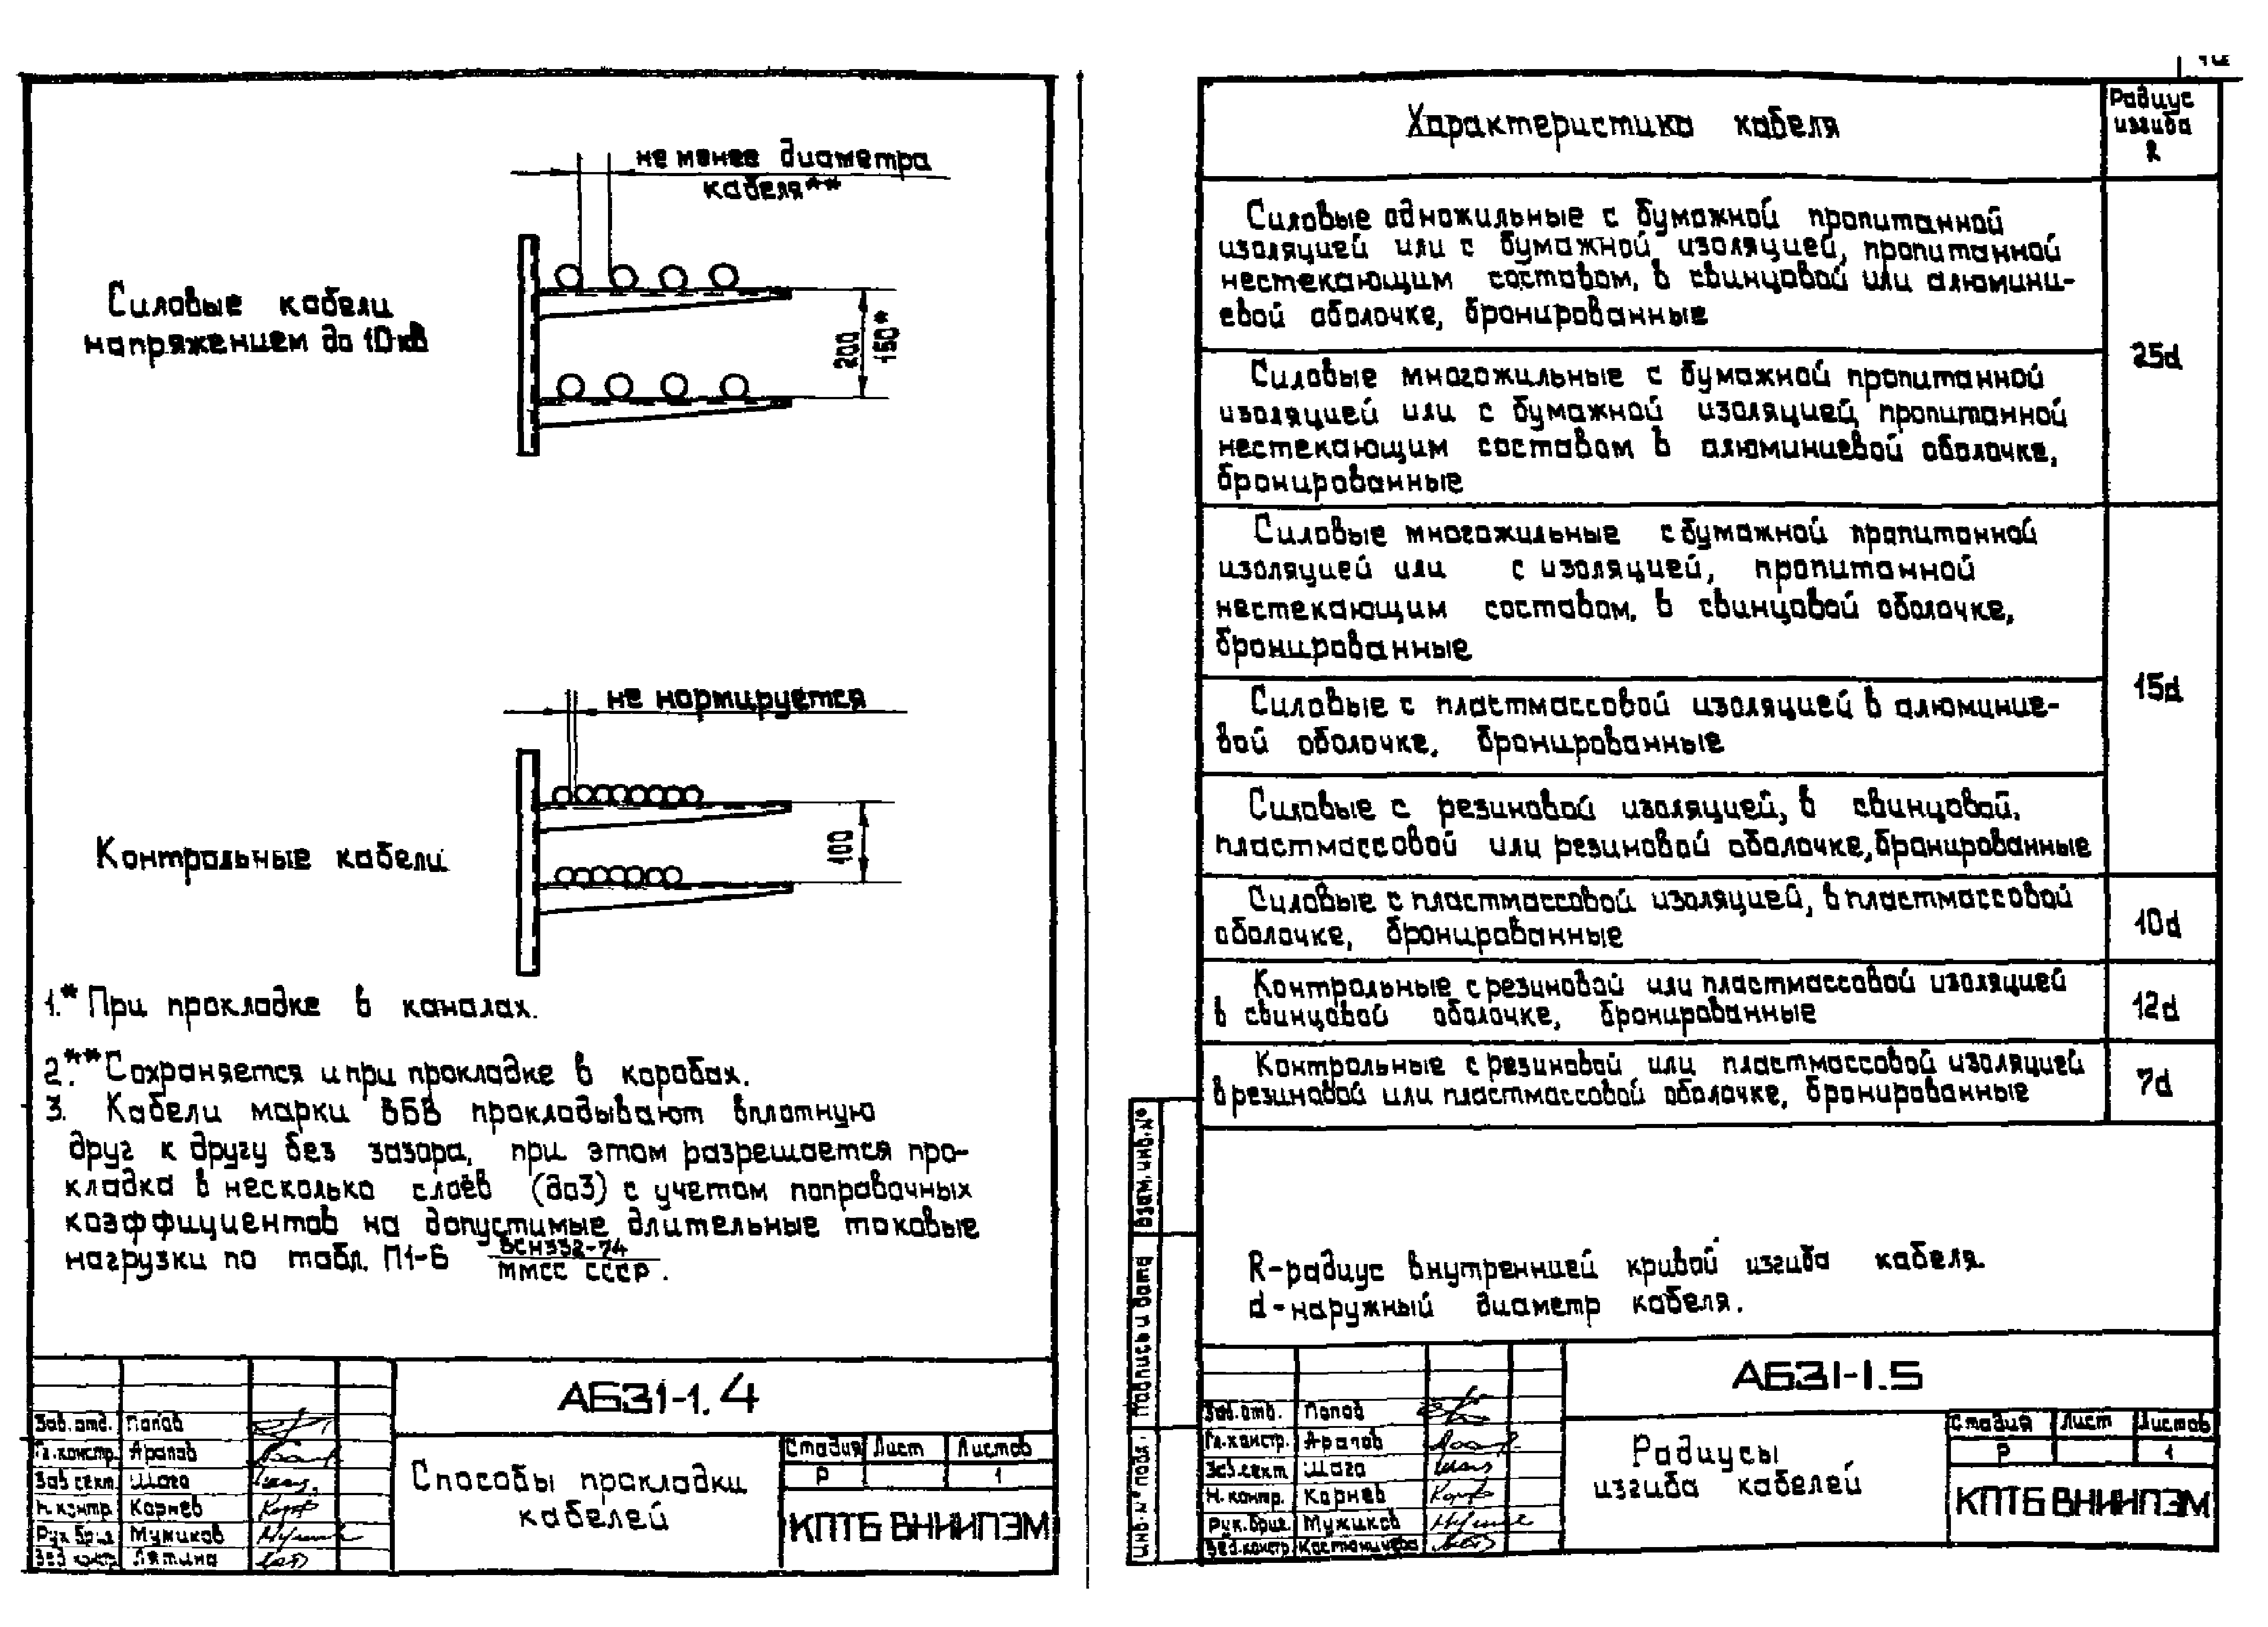 не менее диаметра
кабеля**
Силовые кабели
напряжением до 10кВ
200
150*
не нормируется
Контрольные кабели
100
1.* При прокладке в каналах.
2.** Сохраняется и при прокладке в коробах.
3. Кабели марки ВБВ прокладывают вплотную
друг к другу без зазора, при этом разрешается про-
кладка в несколько слоёв (до3) с учетом поправочных
коэффициентов на допустимые длительные токовые
нагрузки по табл. П1-6 ВСН332-74
ММСС СССР.
А631-1.4
Зав. отд. Попов
Гл. констр. Арапов
Зав сект. Шага
Н. контр. Корнев
Рук. бриг Мужиков
Вед констр. Лятина
Способы прокладки
кабелей
Стадия Лист Листов
Р 1
КПТБ ВНИИПЭМ
Характеристика кабеля
Радиус
изгиба
R
Силовые одножильные с бумажной пропитанной
изоляцией или с бумажной изоляцией, пропитанной
нестекающим составом, в свинцовой или алюмини-
евой оболочке, бронированные
25d
Силовые многожильные с бумажной пропитанной
изоляцией или с бумажной изоляцией, пропитанной
нестекающим составом в алюминиевой оболочке,
бронированные
Силовые многожильные с бумажной пропитанной
изоляцией или с изоляцией, пропитанной
нестекающим составом, в свинцовой оболочке,
бронированные
15d
Силовые с пластмассовой изоляцией в алюминие-
вой оболочке, бронированные
Силовые с резиновой изоляцией, в свинцовой,
пластмассовой или резиновой оболочке, бронированные
Силовые с пластмассовой изоляцией, в пластмассовой
оболочке, бронированные
10d
Контрольные с резиновой или пластмассовой изоляцией
в свинцовой оболочке, бронированные
12d
Контрольные с резиновой или пластмассовой изоляцией
в резиновой или пластмассовой оболочке, бронированные
7d
R-радиус внутренней кривой изгиба кабеля.
d-наружный диаметр кабеля.
Взам. инв. №
Подпись и дата
Инв. № подл.
А631-1.5
Зав. отд. Попов
Гл. констр. Арапов
Зав. сект Шага
Н. контр. Корнев
Рук. бриг. Мужиков
Вед. констр Костаничева
Радиусы
изгиба кабелей
Стадия Лист Листов
Р 1
КПТБ ВНИИПЭМ